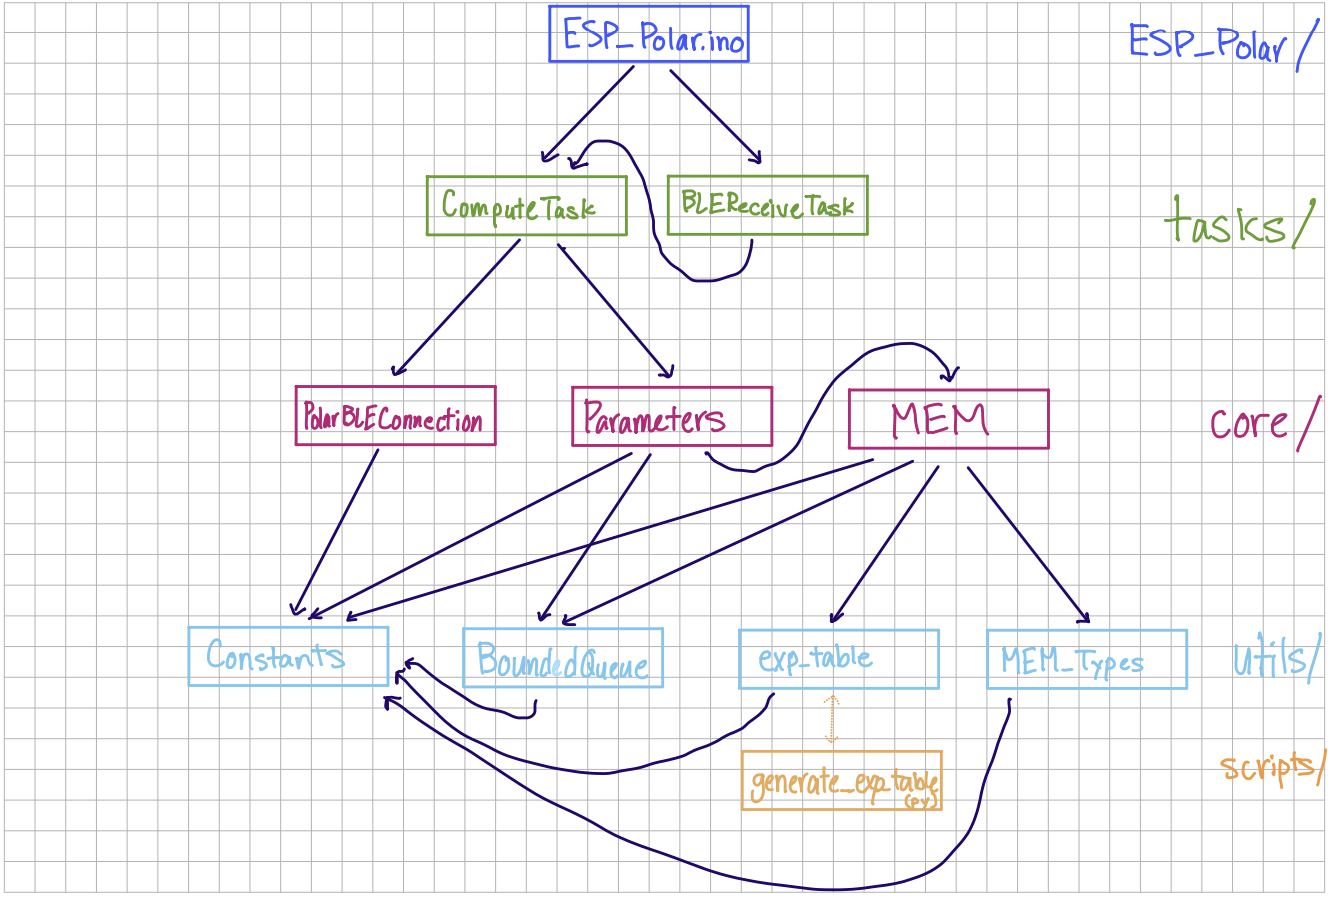 ESP_Polar.ino
ESP_Polar/
ComputeTask
BLEReceiveTask
tasks/
PolarBLEConnection
Parameters
MEM
core/
Constants
BoundedQueue
exp_table
MEM_Types
utils/
generate_exp_table
(py)
scripts/